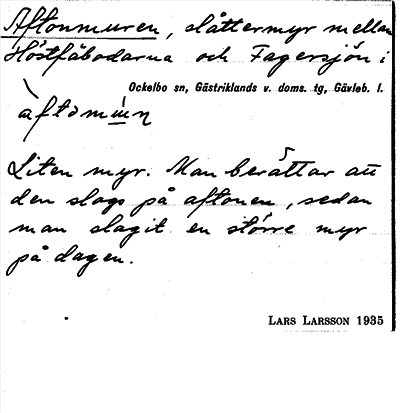 Aftonmuren, slåttermyr mellan
Höstfäbodarna och Fagersjön i
Ockelbo sn, Gästriklands v. doms. tg, Gävleb. l.
Liten myr. Man berättar att
den slogs på aftonen, sedan
man slagit en större myr
på dagen.
LARS LARSSON 1935